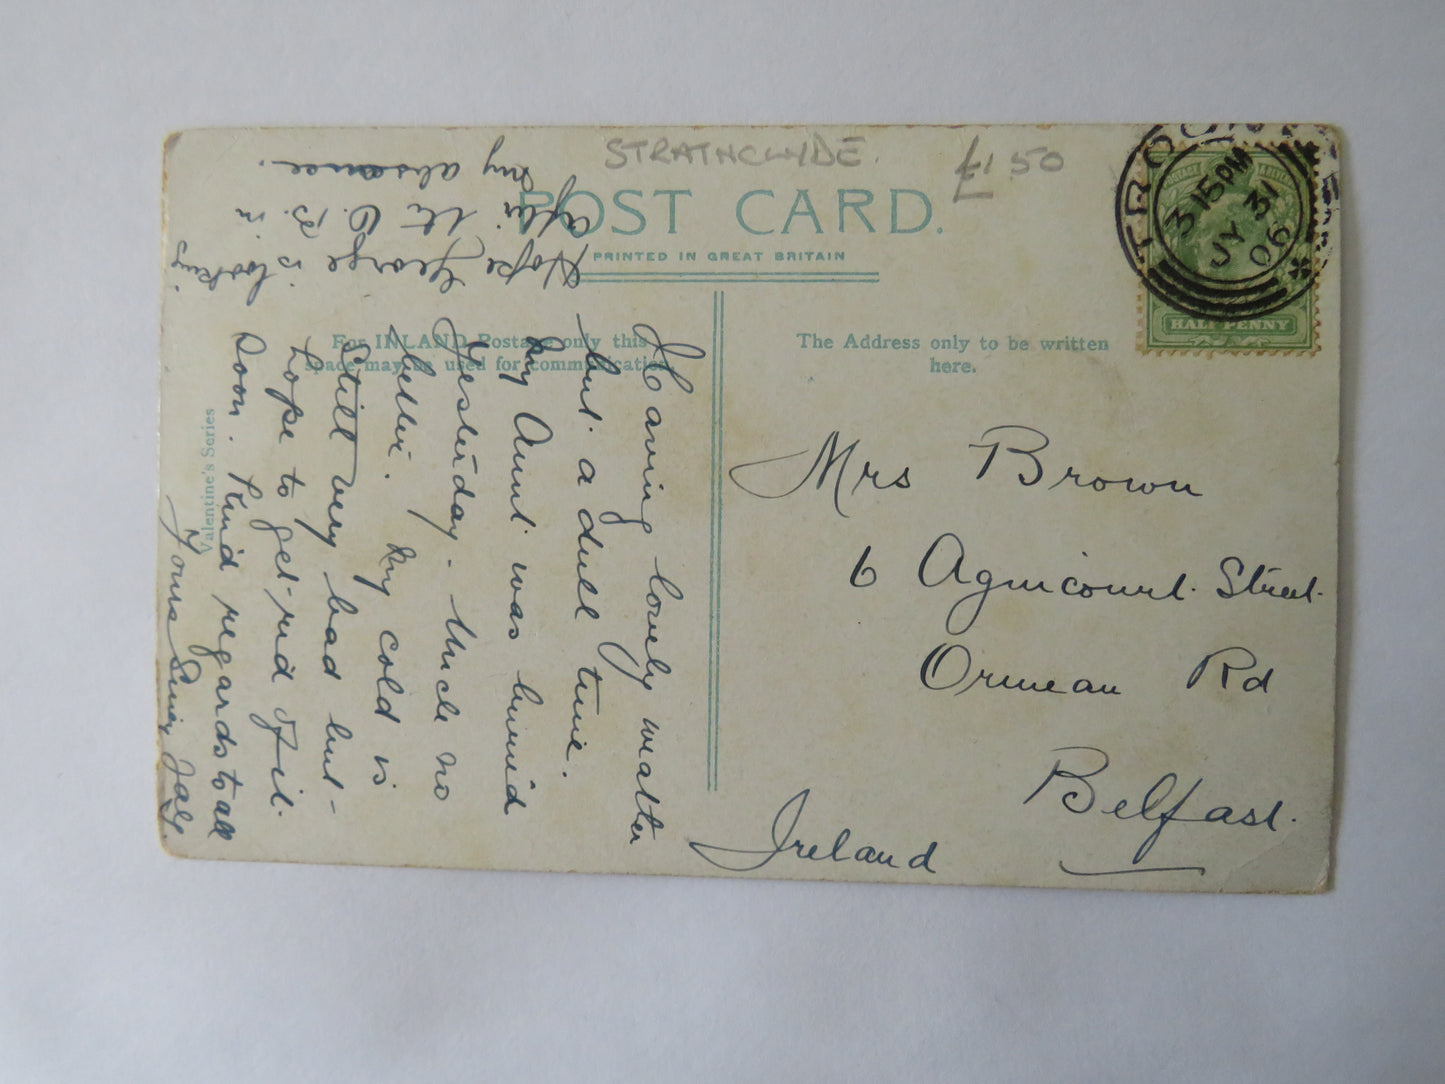 STRATHCLYDE. £1 50
POST CARD.
PRINTED IN GREAT BRITAIN
For INLAND Postage only this
space may be used for communication
The Address only to be written
here.
Valentine's Series
TROON
3 15PM
JY 31
06
HALF PENNY
Mrs Brown
6 Agincourt Street
Ormeau Rd
Belfast.
Ireland
Having lovely weather
but a dull time.
My Aunt was buried
Yesterday. Uncle no
better. My cold is
Still very bad but
hope to get rid of it
soon. Kind regards to all
Yours
Hope George is looking
after the P.B. in
my absence.